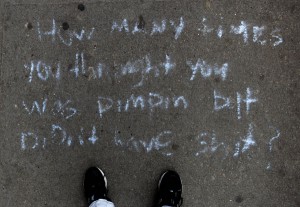 How MANY times
you thought you
was pimpin but
Didnt have shit?